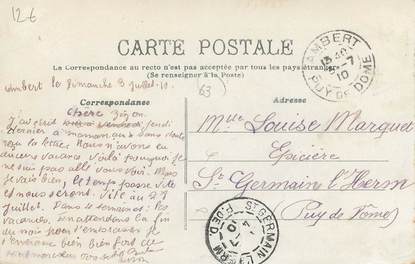 12€
CARTE POSTALE
La Correspondance au recto n'est pas acceptée par tous les pays étrangers
(Se renseigner à la Poste)
AMBERT
PUY DE DÔME
Ambert le dimanche 3 juillet 10.
63
Correspondance
Adresse
Chère
J'ai écrit
dernier à maman
les lettres Nous n'avons eu
aucune vacance Voilà pourquoi je
ne suis pas allé vous voir. Mais
je vais bien, le temps passe vite
et nous serons vite au 27
juillet. Dans 4 semaines: les
vacances. En attendant la fin
du mois pour t'embrasser je
t'envoie bien bien fort de
Mlle Louise Marquet
Epicière
St Germain l'Herm
(Puy de Dôme)
ST GERMAIN L'HERM
P. DE D.